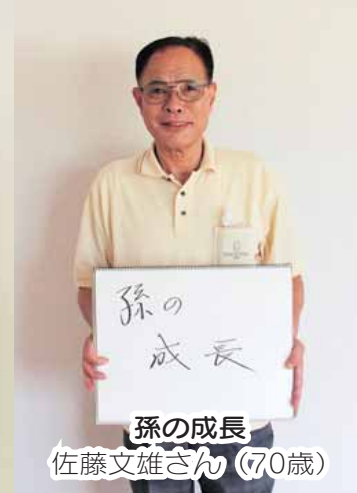 孫の
成長
孫の成長
佐藤文雄さん（70歳）